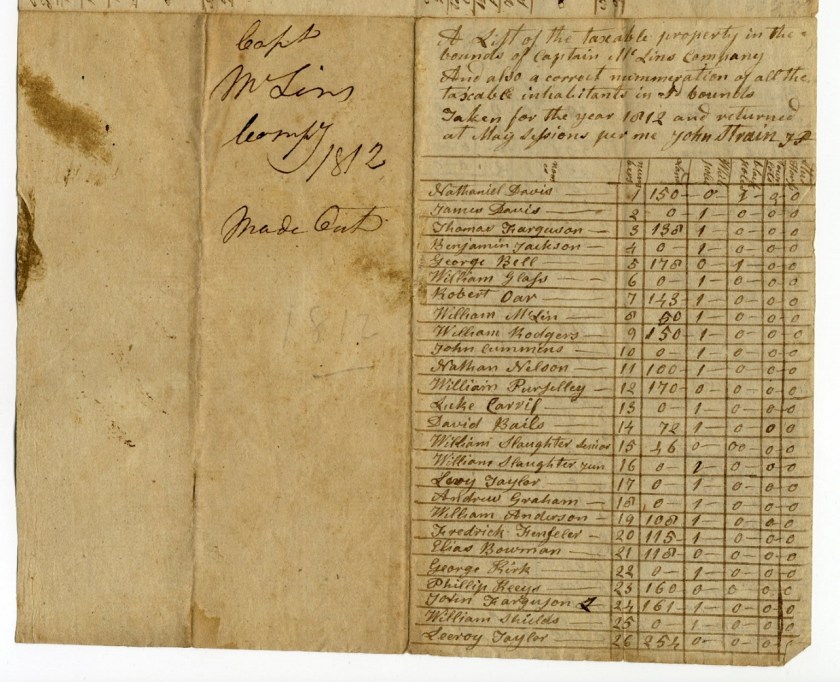 Capt
McLins
Compy
1812
Made Out
1812
A List of the taxable property in the
bounds of Captain McLins Company
And also a correct nummeration of all the
taxable inhabitants in bounds
Taken for the year 1812 and returned
at May sessions per me John Strain J P
Nathaniel Davis — 1 150 — 0 1 — 2 — 0
James Davis — 2 0 — 1 — 0 — 0 — 0
Thomas Farguson — 3 138 1 — 0 — 0 — 0
Benjamin Jackson — 4 0 — 1 — 0 — 0 — 0
George Bell 5 178 0 — 1 — 0 0
William Glass — 6 0 — 1 — 0 — 0 — 0
Robert Oar — 7 143 1 — 0 — 0 — 0
William McLin — 8 50 0 — 0 — 0 — 0
William Rodgers — 9 150 1 — 0 — 0 — 0
John Cummins — 10 0 — 1 — 0 — 0 — 0
Nathan Nilson — 11 100 1 — 0 — 0 — 0
William — 12 170 — 0 — 0 — 0 — 0
Luke — 13 0 — 1 — 0 — 0 — 0
David Bails 14 72 1 — 0 — 0 0
William Slaughter senior 15 46 0 — 00 — 0 — 0
William Slaughter jun 16 0 — 1 — 0 — 0 — 0
Levy Taylor — 17 0 — 1 — 0 — 0 — 0
Andrew Graham — 18 0 — 1 — 0 — 0 — 0
William Anderson — 19 108 1 — 0 — 0 0
Fredrick — 20 115 — 1 — 0 — 0 — 0
Elias Bowman — 21 118 0 — 0 — 0 — 0
George Kirk 22 0 — 1 — 0 — 0 — 0
Phillip Keeys — 23 160 0 — 0 — 0 — 0
John Farguson 24 161 — 1 — 0 — 0 — 0
William Shields 25 0 1 — 0 — 0 — 0
Leeroy Taylor — 26 254 0 — 0 — 0 — 0